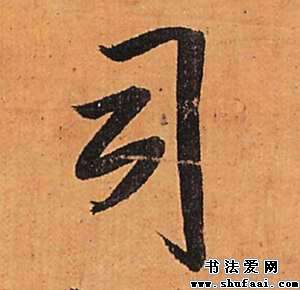 司
书法爱网
www.shufaai.com